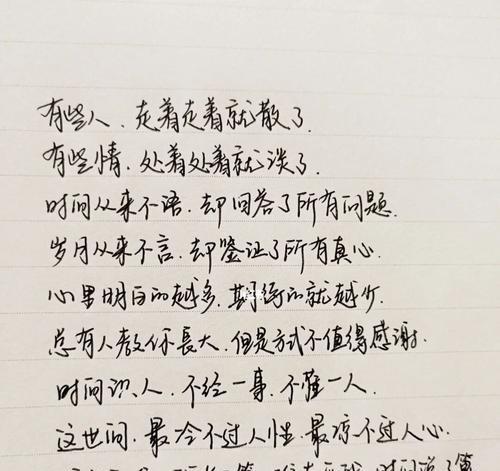 有些人、走着走着就散了.
有些情、处着处着就淡了.
时间从来不语、却回答了所有问题.
岁月从来不言、却鉴证了所有真心.
心里明白的越多、期待的就越少.
总有人教你長大、但是方式不值得感谢.
时间识人、不经一事、不懂一人.
这世间、最冷不过人性、最凉不过人心.